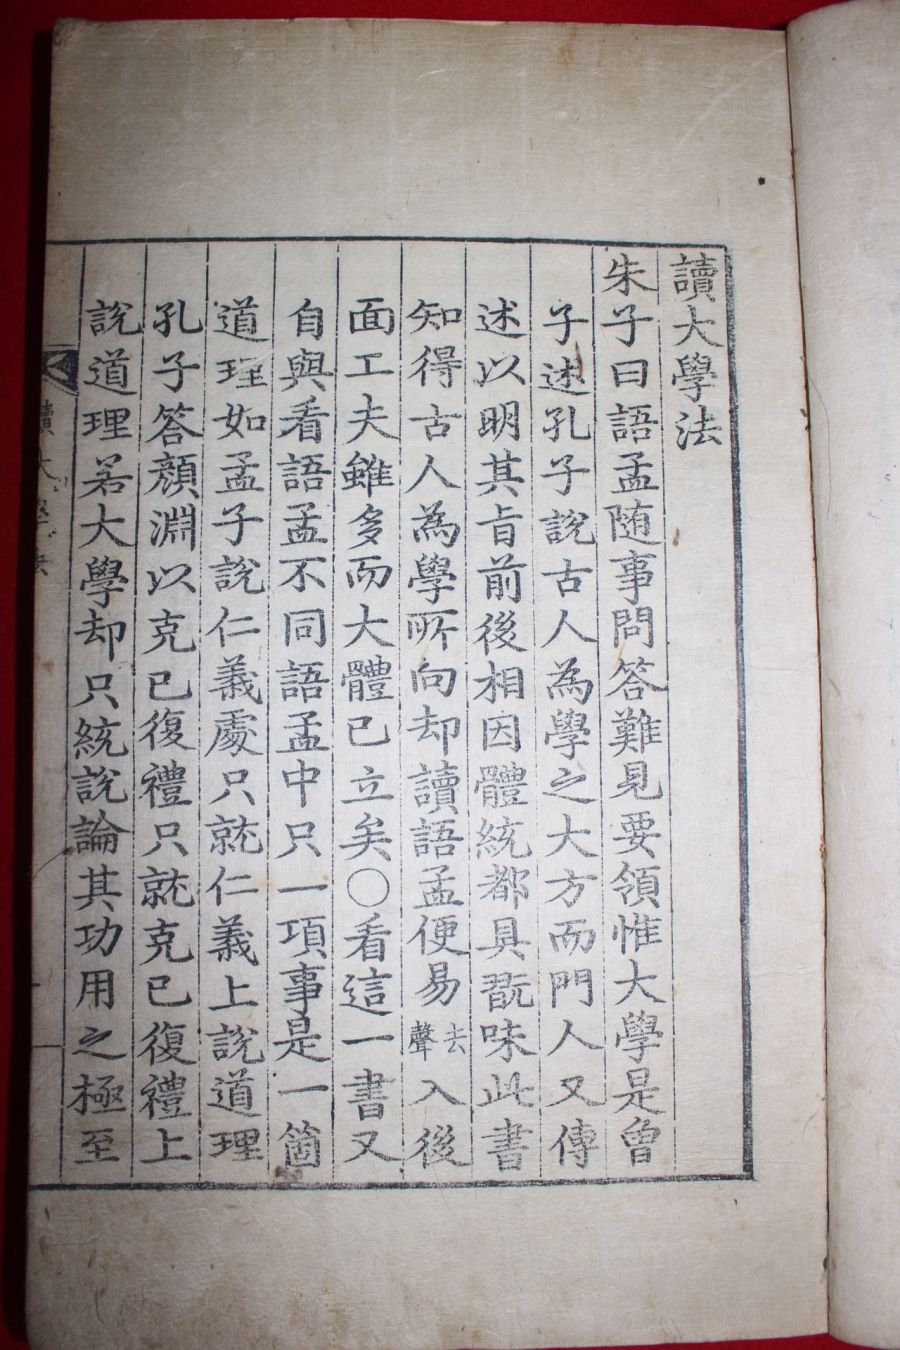 讀大學法
朱子曰語孟随事問答難見要領惟大學是曾
子述孔子說古人為學之大方而門人又傳
述以明其旨前後相因體統都具翫味此書
知得古人為學所向却讀語孟便易去聲入後
面工夫雖多而大體已立矣○看這一書又
自與看語孟不同語孟中只一項事是一箇
道理如孟子說仁義處只就仁義上說道理
孔子答顔淵以克己復禮只就克己復禮上
說道理若大學却只統說論其功用之極至
讀大學法